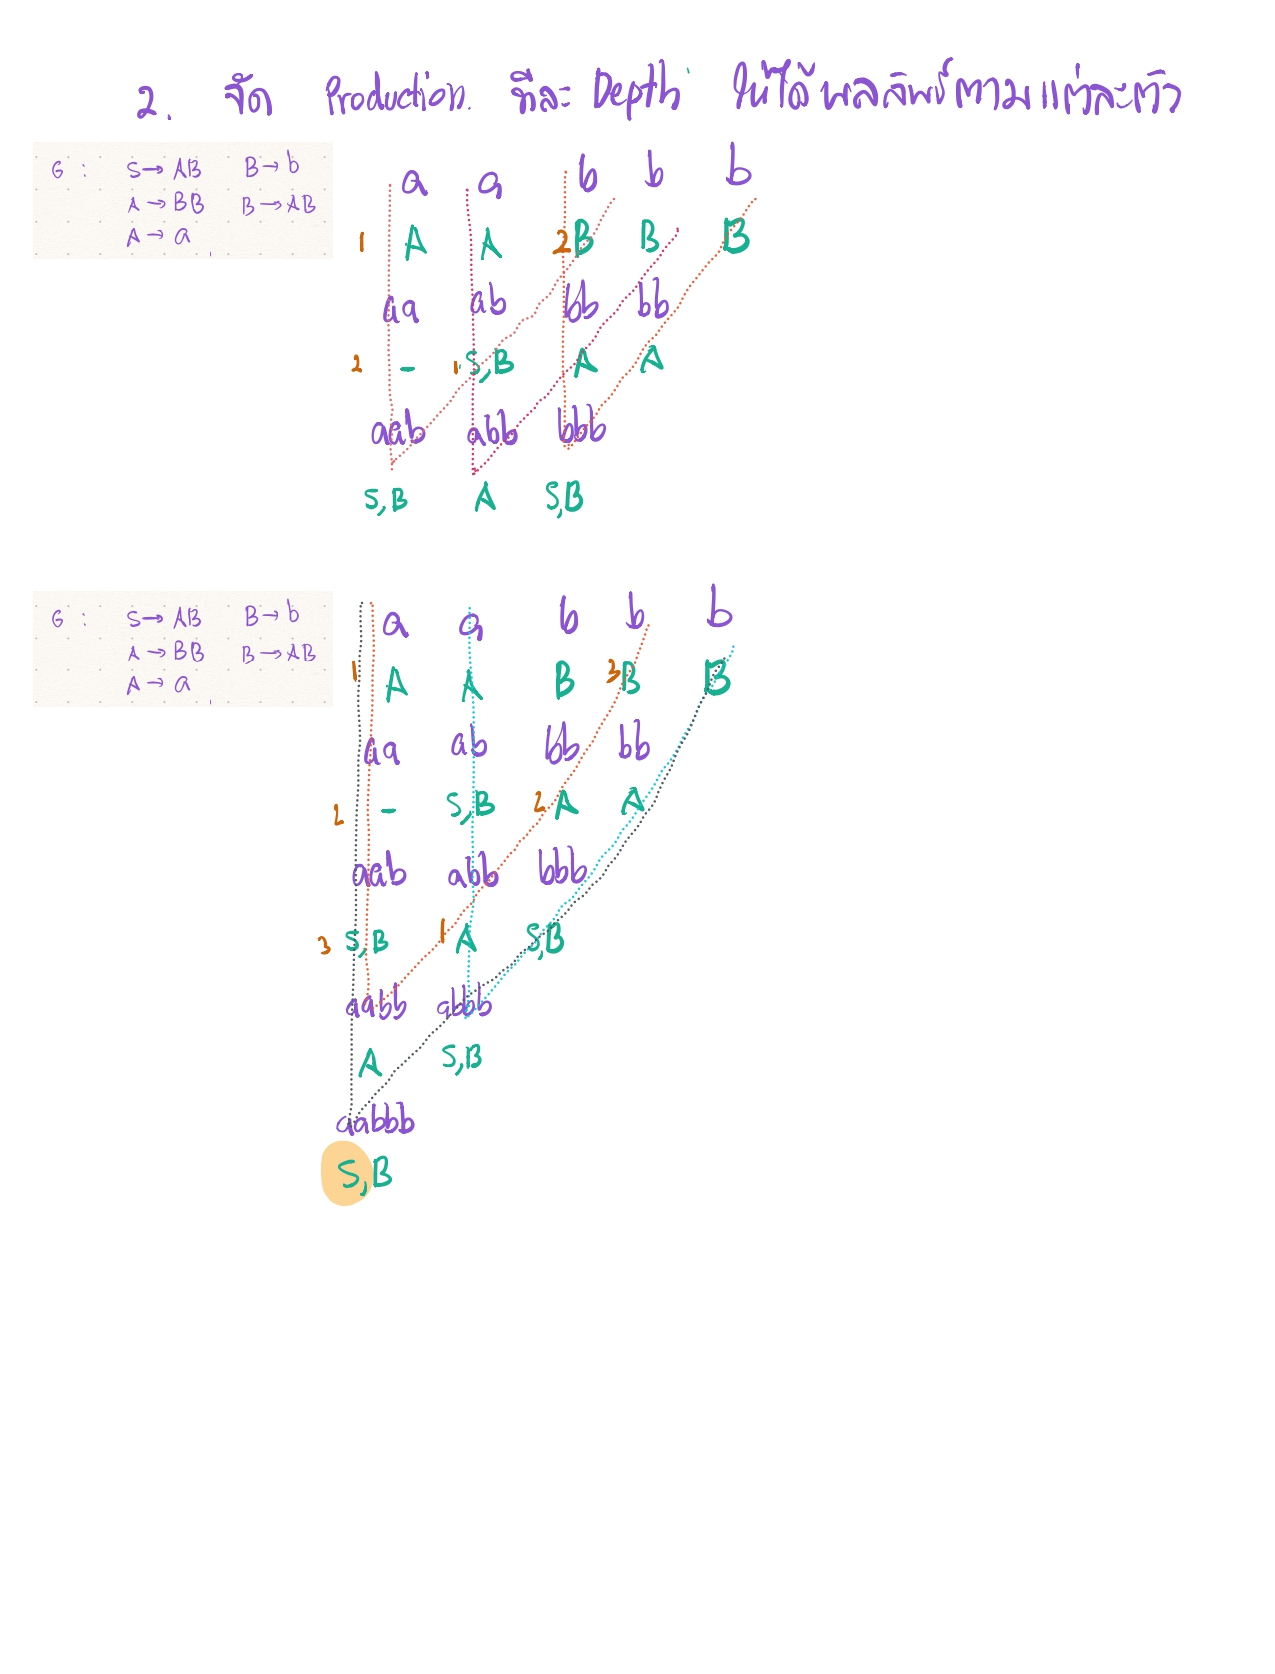 2. จัด Production ทีละ Depth ให้ได้ผลลัพธ์ตามแต่ละตัว
G : S → AB B → b
A → BB B → AB
A → a
a a b b b
1 A A 2 B B B
aa ab bb bb
2 - 1 S,B A A
aab abb bbb
S,B A S,B
G : S → AB B → b
A → BB B → AB
A → a
a a b b b
1 A A B 3 B B
aa ab bb bb
2 - S,B 2 A A
aab abb bbb
3 S,B 1 A S,B
aabb abbb
A S,B
aabbb
S,B